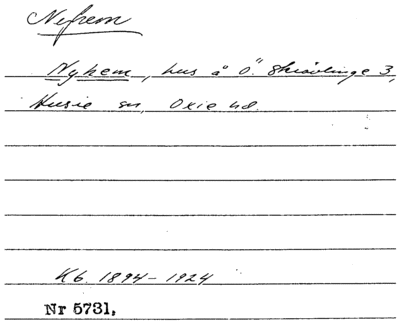 Nyhem
Nyhem, hus å Ö. Skrävlinge 3,
Husie sn, Oxie hd.
Kb. 1894-1924
Nr 5731.